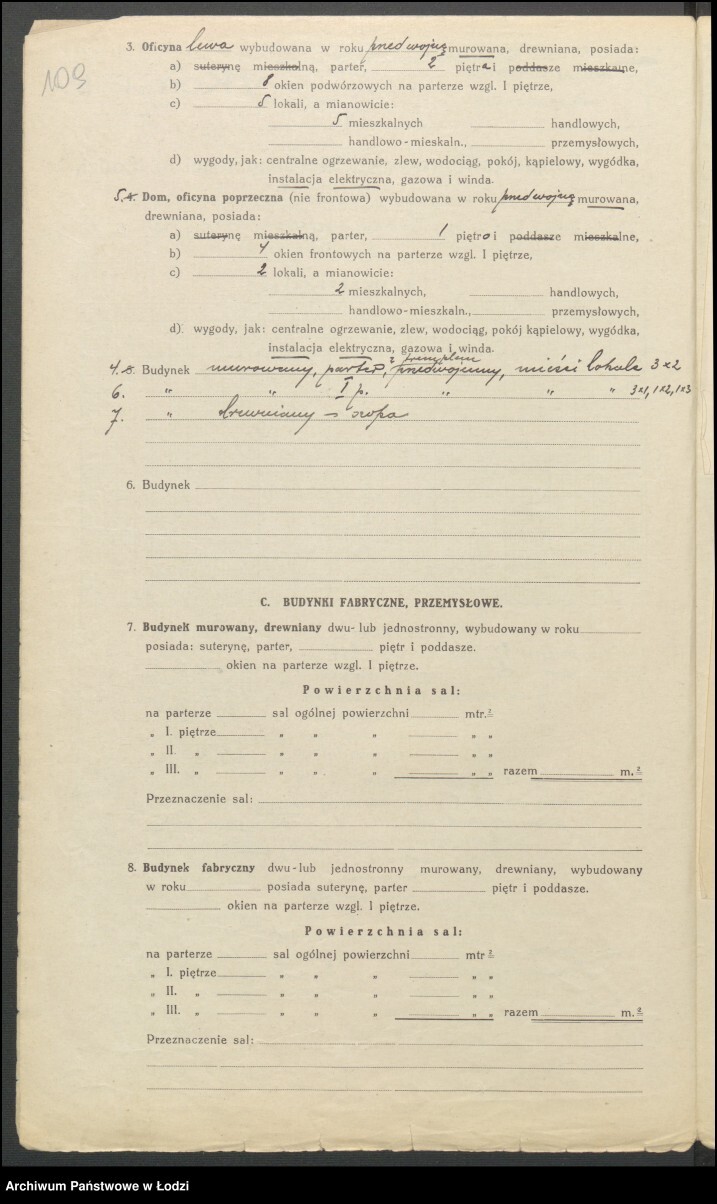 109
3. Oficyna lewa wybudowana w roku przedwojną murowana, drewniana, posiada:
a) suterynę mieszkalną, parter, 2 piętra i poddasze mieszkalne,
b) 8 okien podwórzowych na parterze wzgl. I piętrze,
c) 5 lokali, a mianowicie:
5 mieszkalnych handlowych,
handlowo-mieskaln., przemysłowych,
d) wygody, jak: centralne ogrzewanie, zlew, wodociąg, pokój, kąpielowy, wygódka,
instalacja elektryczna, gazowa i winda.
5. 4. Dom, oficyna poprzeczna (nie frontowa) wybudowana w roku przedwojną murowana,
drewniana, posiada:
a) suterynę mieszkalną, parter, 1 piętro i poddasze mieszkalne,
b) 4 okien frontowych na parterze wzgl. I piętrze,
c) 2 lokali, a mianowicie:
2 mieszkalnych, handlowych,
handlowo-mieszkaln., przemysłowych,
d). wygody, jak: centralne ogrzewanie, zlew, wodociąg, pokój kąpielowy, wygódka,
instalacja elektryczna, gazowa i winda.
4. 5. Budynek murowany, parter, przedwojenny, mieści lokale 3x2
6. " " I p. " " " 3x1, 1x2, 1x3
7. " drewniany – szopa
6. Budynek
C. BUDYNKI FABRYCZNE, PRZEMYSŁOWE.
7. Budynek murowany, drewniany dwu- lub jednostronny, wybudowany w roku
posiada: suterynę, parter, piętr i poddasze.
okien na parterze wzgl. I piętrze.
Powierzchnia sal:
na parterze sal ogólnej powierzchni mtr.²
„ I. piętrze „ „ „ „ „
„ II. „ „ „ „ „ „
„ III. „ „ „ „ „ „ razem m.²
Przeznaczenie sal:
8. Budynek fabryczny dwu-lub jednostronny murowany, drewniany, wybudowany
w roku posiada suterynę, parter piętr i poddasze.
okien na parterze wzgl. I piętrze.
Powierzchnia sal:
na parterze sal ogólnej powierzchni mtr²
„ I. piętrze „ „ „ „ „
„ II. „ „ „ „ „ „
„ III. „ „ „ „ „ „ razem m.²
Przeznaczenie sal:
Archiwum Państwowe w Łodzi